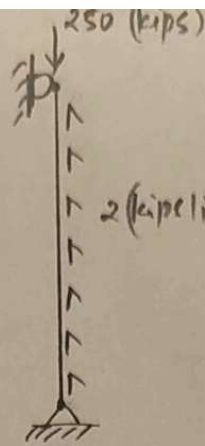 250 (kips)
2 (kips/